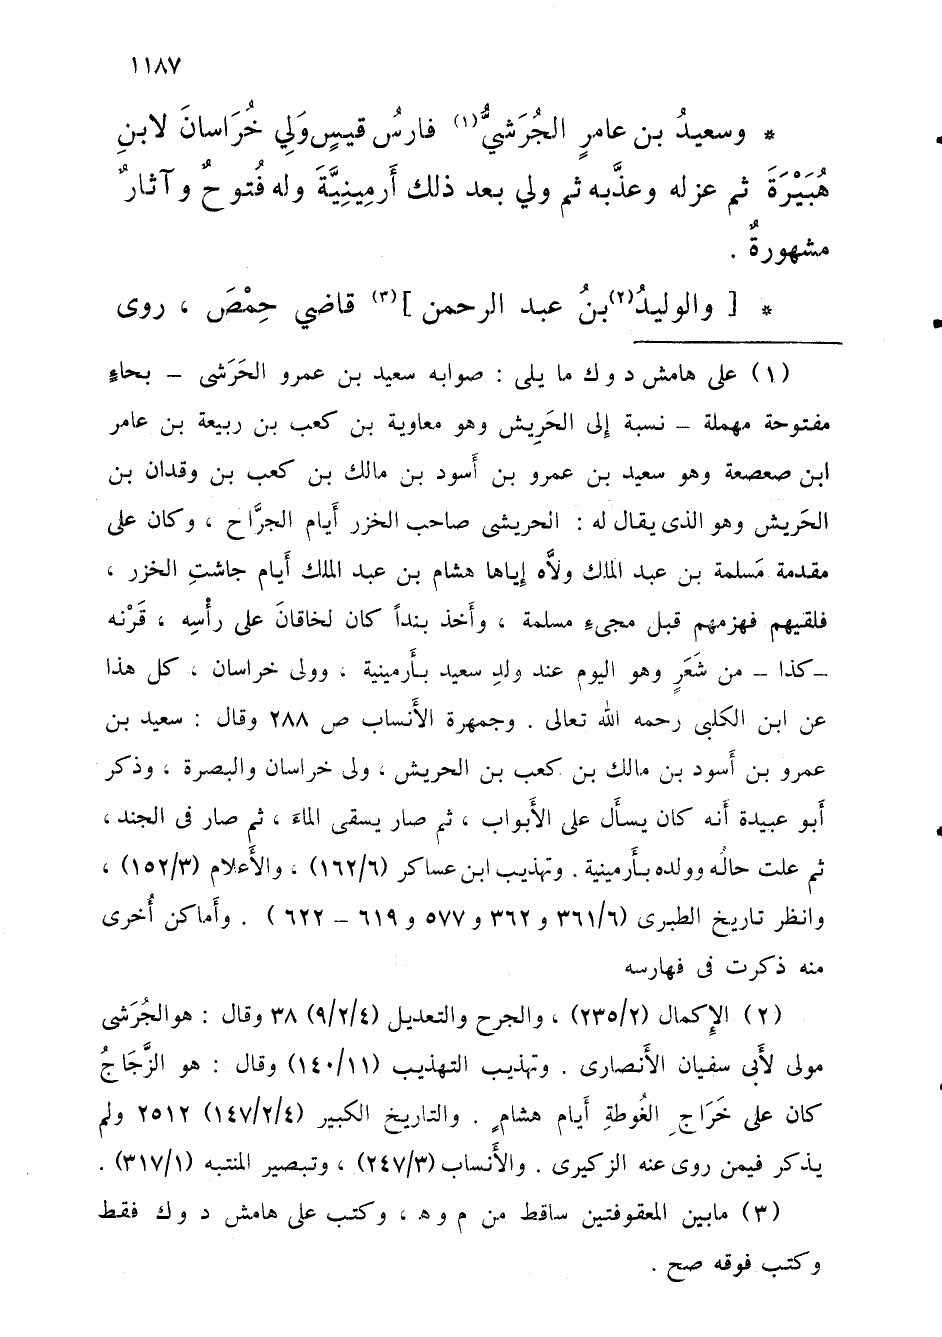 ١١٨٧
* وسعيدُ بن عامرٍ الجُرَشيُّ(١) فارسُ قيسٍ وَلي خُرَاسانَ لابنِ
هُبَيْرَةَ ثم عزله وعذَّبه ثم ولي بعد ذلك أَرمِينِيَّةَ وله فُتوحٌ وآثارٌ
مشهورةٌ .
* [ والوليدُ(٢) بنُ عبد الرحمن ](٣) قاضي حِمْصَ ، روى
(١) على هامش د وك ما يلى : صوابه سعيد بن عمرو الحَرَشى – بحاءٍ
مفتوحة مهملة – نسبة إلى الحَرِيش وهو معاوية بن كعب بن ربيعة بن عامر
ابن صعصعة وهو سعيد بن عمرو بن أَسود بن مالك بن كعب بن وقدان بن
الحَريش وهو الذى يقال له : الحريشى صاحب الخزر أَيام الجرَّاح ، وكان على
مقدمة مَسلمة بن عبد الملك ولاَّه إياها هشام بن عبد الملك أَيام جاشتِ الخزر ،
فلقيهم فهزمهم قبل مجىءِ مسلمة ، وأَخذ بنداً كان لخاقانَ على رأْسِه ، قَرْنه
–كذا – من شَعَرٍ وهو اليوم عند ولدِ سعيد بأَرمينية ، وولى خراسان ، كل هذا
عن ابن الكلبى رحمه الله تعالى . وجمهرة الأَنساب ص ٢٨٨ وقال : سعيد بن
عمرو بن أَسود بن مالك بن كعب بن الحريش ، ولى خراسان والبصرة ، وذكر
أَبو عبيدة أَنه كان يسأَل على الأَبواب ، ثم صار يسقى الماءَ ، ثم صار فى الجند ،
ثم علت حالُه وولده بأَرمينية . وتهذيب ابن عساكر (١٦٢/٦) ، والأَعلام (١٥٢/٣) ،
وانظر تاريخ الطبرى (٣٦١/٦ و ٣٦٢ و ٥٧٧ و ٦١٩ – ٦٢٢ ) . وأَماكن أُخرى
منه ذكرت فى فهارسه
(٢) الإِكمال (٢٣٥/٢) ، والجرح والتعديل (٩/٢/٤) ٣٨ وقال : هو الجُرَشى
مولى لأَبى سفيان الأَنصارى . وتهذيب التهذيب (١٤٠/١١) وقال : هو الزَّجَاجُ
كان على خَرَاجِ الغُوطةِ أَيام هشامٍ . والتاريخ الكبير (١٤٧/٢/٤) ٢٥١٢ ولم
يذكر فيمن روى عنه الزكيرى . والأَنساب (٢٤٧/٣) ، وتبصير المنتبه (٣١٧/١) .
(٣) مابين المعقوفتين ساقط من م وه ، وكتب على هامش د وك فقط
وكتب فوقه صح .